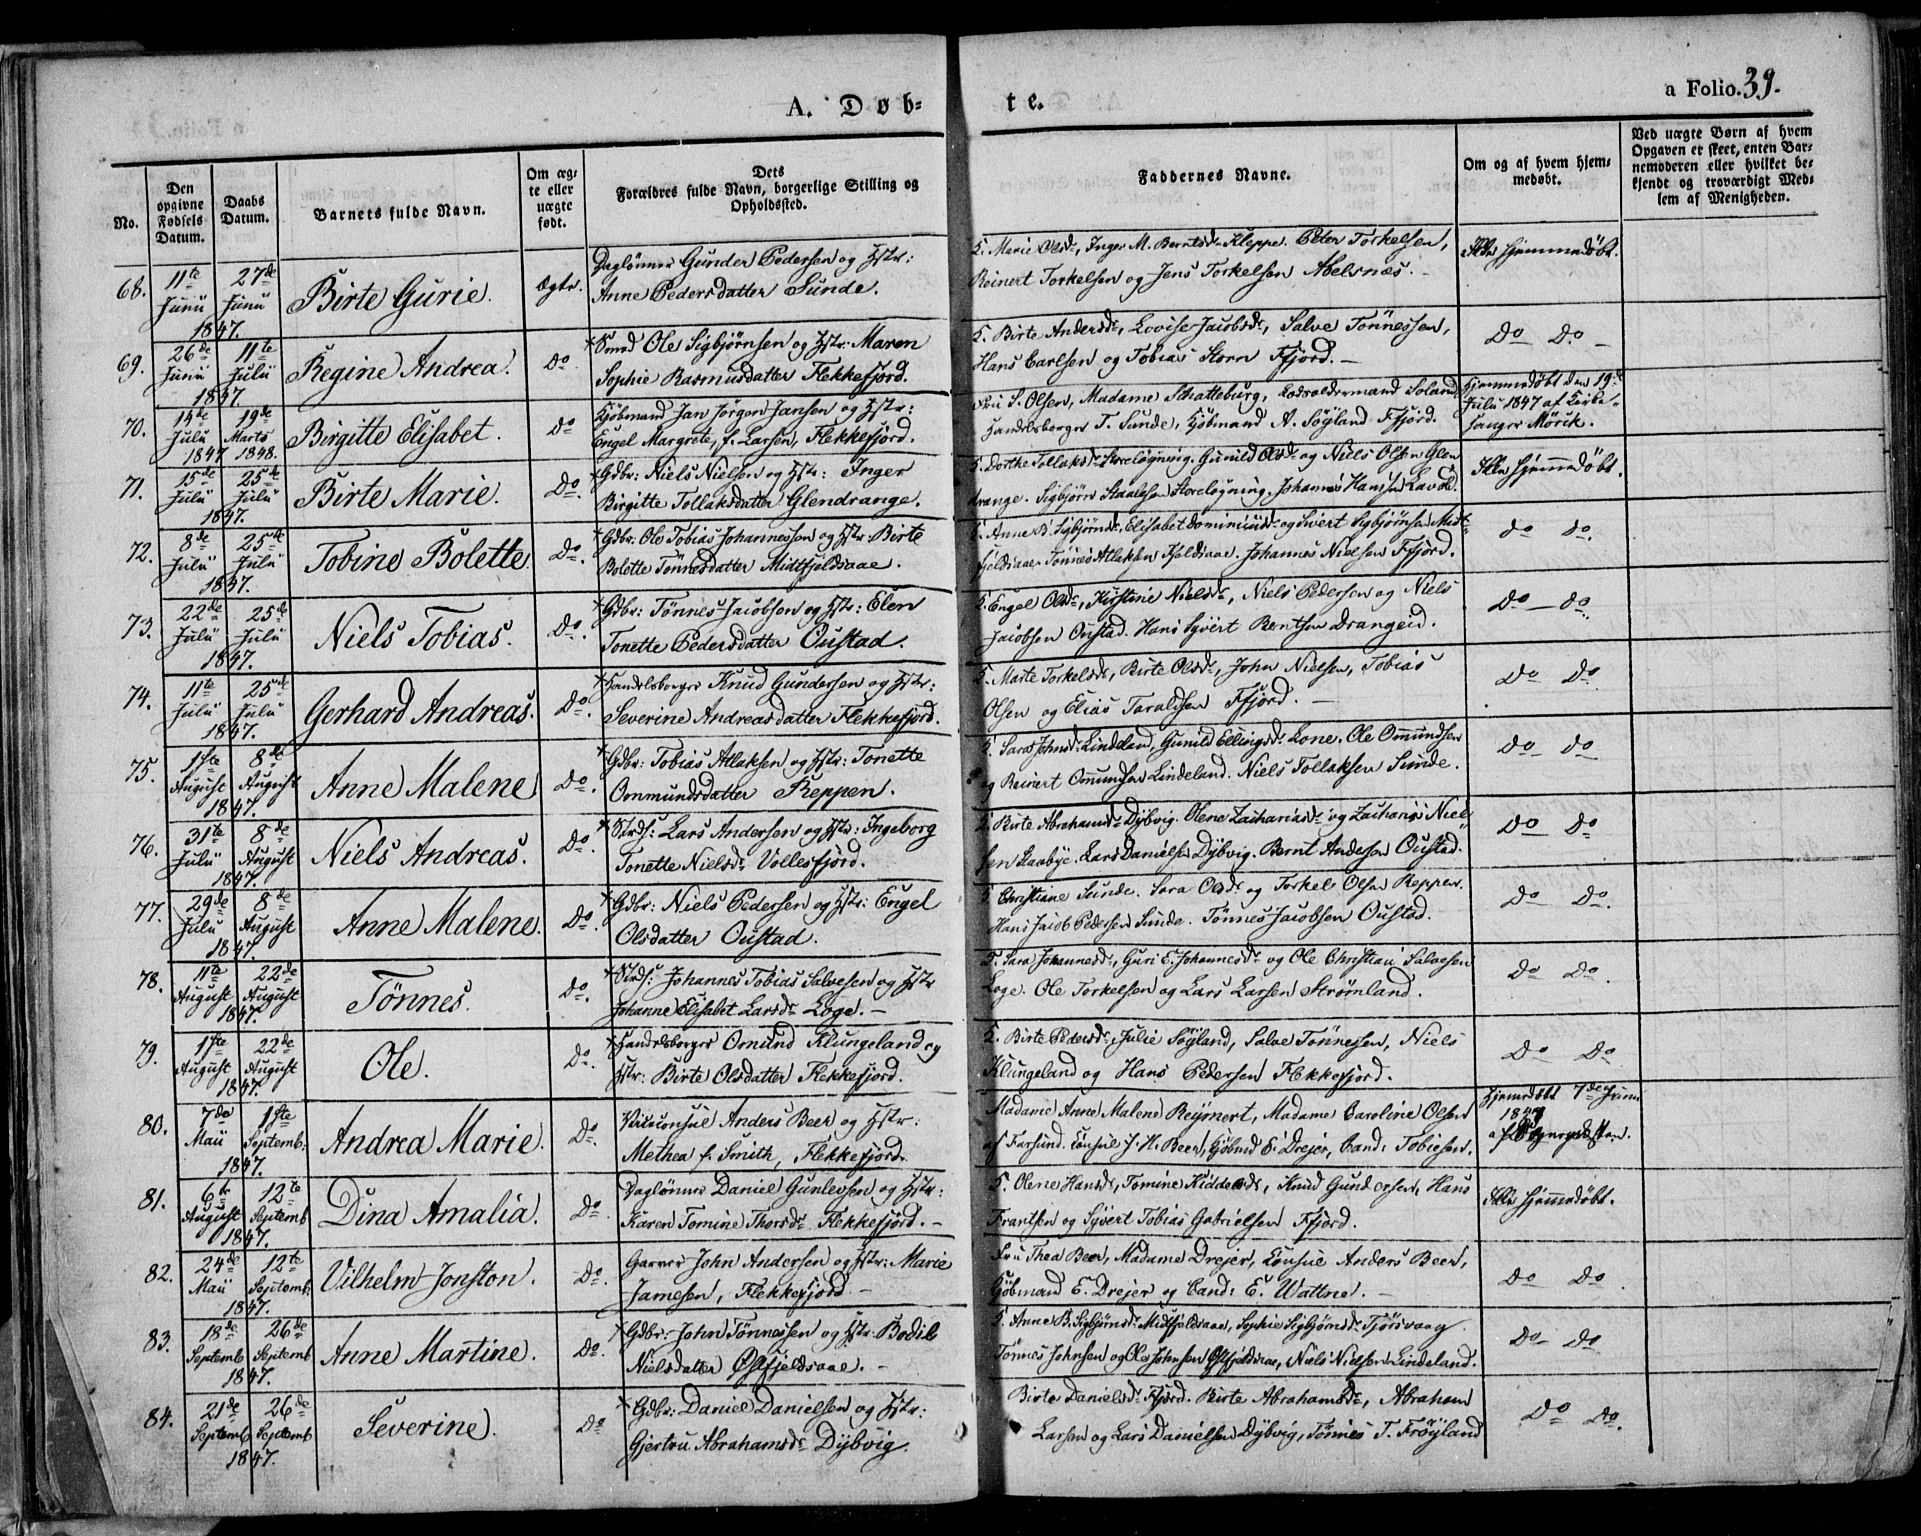 A. Døb-
te.
a Folio. 39.
No.
Den opgivne Fødsels Datum.
Daabs Datum.
Barnets fulde Navn.
Om ægte eller uægte født.
Dets Forældres fulde Navn, borgerlige Stilling og Opholdssted.
Faddernes Navne.
Om og af hvem hjemmedøbt.
Ved uægte Børn af hvem Opgaven er skeet, enten Barnemoderen eller hvilket bekjendt og troværdigt Medlem af Menigheden.
68. 11te Juni 27de Juni 1847. Birte Gurie. Ægte.
Daglønner Gunder Pedersen og Hstr:
Anne Pedersdatter Sunde.
Marie Olsdr, Inger M. Berntsdr Kleppe. Peder Torkelsen,
Reinert Torkelsen og Jens Torkelsen Abelsnæs.
Ikke hjemmedøbt.
69. 26de Juni 11te Juli 1847. Regine Andrea. Do.
Smed Ole Sigbjørnsen og Hstr: Maren
Sophie Rasmusdatter Flekkefjord.
Birte Andersdr, Lovise Jacobsdr, Salve Tønnessen,
Hans Carlsen og Tobias Storm Ffjord.
Do Do
70. 14de Juli 1847 19de Marts 1848. Birgitte Elisabet. Do
Kjøbmand Jan Jørgen Jansen og Hstr:
Engel Margrete, f. Larsen, Flekkefjord.
Fru S. Olsen, Madame Schatteburg, Soland,
Handelsborger T. Sunde, Kjøbmand A. Søyland Ffjord.
Hjemmedøbt den 19de
Juli 1847 af Kirke-
sanger Mörik.
71. 15de Juli 25de Juli 1847. Birte Marie. Do.
Gdbr: Niels Nielsen og Hstr: Inger
Birgitte Tollaksdatter Glendrange.
Dorthe Tollaksdr Storeløgning. Gunild Olsdr og Niels Olsen Glen
drange. Sigbjørn Staalesen Storeløgning. Johannes Hansen Lavold.
Ikke hjemmedøbt.
72. 8de Juli 25de Juli 1847. Tobine Bolette. Do.
Gdbr: Ole Tobias Johannessen og Hstr: Birte
Bolette Tønnesdatter Midtfjeldsaae.
Anne B. Sigbjørnsdr, Elisabet Dominicusdr og Sivert Sigbjørnsen Midt-
fjeldsaae. Tønnes Atlaksen Fjeldsaae. Johannes Nielsen Ffjord.
do do.
73. 22de Juli 25de Juli 1847. Niels Tobias. Do.
Gdbr: Tønnes Jacobsen og Hstr: Elen
Tonette Pedersdatter Oustad.
Engel Olsdr, Kirstine Nielsdr, Niels Pedersen og Niels
Jacobsen Oustad. Hans Syvert Berntsen Drangeid.
Do do.
74. 11te Juli 25de Juli 1847. Gerhard Andreas. Do.
Handelsborger Knud Gundersen og Hstr:
Severine Andreasdatter Flekkefjord.
Marte Torkelsdr, Birte Olsdr, John Nielsen, Tobias
Olsen og Elias Taraldsen Ffjord.
Do Do.
75. 1ste August 8de August 1847. Anne Malene. Do.
Gdbr: Tobias Atlaksen og Hstr: Tonette
Ommundsdatter Reppen.
Sara Johnsdr Lindeland, Gunild Ellingsdr Lone. Ole Ommundsen
og Reinert Ommundsen Lindeland. Niels Tollaksen Sunde.
Do do
76. 31te Juli 8de August 1847. Niels Andreas. Do.
Strds: Lars Andersen og Hstr: Ingeborg
Tonette Nielsdr Vollesfjord.
Birte Abrahamsdr Dybvig. Olene Zachariasdr og Zacharias Niel-
sen Staabye. Lars Danielsen Dybvig. Bernt Andersen Oustad.
Do Do
77. 29de Juli 8de August 1847. Anne Malene. Do.
Gdbr: Niels Pedersen og Hstr: Engel
Olsdatter Oustad.
Christiane Sunde. Sara Olsdr og Torkel Olsen Reppen.
Hans Jacob Pedersen Sunde. Tønnes Jacobsen Oustad.
Do Do.
78. 11te August 22de August 1847. Tönnes. Do.
Strds: Johannes Tobias Salvesen og Hstr
Johanne Elisabet Larsdr Loge.
Sara Johannesdr, Guri E. Johannesdr og Ole Christian Salvesen
Loge. Ole Torkelsen og Lars Larsen Strömland.
Do Do.
79. 1ste August 22de August 1847. Ole. Do.
Handelsborger Omund Klungeland og
Hstr: Birte Olsdatter Flekkefjord.
Birte Pedersdr, Julie Søyland, Salve Tönnessen, Niels
Klungeland og Hans Pedersen Flekkefjord.
Do Do
80. 7de Mai 1ste Septemb: 1847. Andrea Marie. Do.
Viceconsul Anders Beer og Hstr:
Methea f. Smith, Flekkefjord.
Madame Anne Malene Reymert, Madame Caroline Olsen
af Farsund. Consul J. H. Beer, Kjøbmd E. Drejer, Cand: Tobiesen.
Hjemedøbt 7de Juni
1847
81. 6te August 12te Septemb 1847. Dina Amalia. Do.
Daglønner Daniel Gunlevsen og Hstr:
Karen Tomine Thorsdr Flekkefjord.
Olene Hansdr, Tomine Kiddelsdr, Knud Gundersen, Hans
Frantsen og Syvert Tobias Gabrielsen Ffjord.
Ikke hjemmedøbt.
82. 24de Mai 12te Septemb: 1847. Vilhelm Jonston. Do.
Garver John Andersen og Hstr: Marie
Jamesen, Flekkefjord.
Fru Thea Beer, Madame Drejer, Consul Anders Beer,
Kjöbmand E. Drejer og Cand: E. Wattne.
Do Do.
83. 18de Septemb 26de Septemb 1847. Anne Martine. Do.
Gdbr: John Tønnessen og Hstr: Bodil
Nielsdatter Østfjeldsaae.
Anne B. Sigbjørnsdr Midtfjeldsaae, Sophie Sigbjørnsdr Tjørsvaag.
Tönnes Johnsen og Ole Johnsen Østfjeldsaae, Niels Nielsen Lindeland.
Do Do.
84. 21de Septemb 26de Septemb 1847. Severine. Do
Gdbr: Daniel Danielsen og Hstr:
Gjertru Abrahamsdr Dybvig.
Birte Danielsdr Ffjord. Birte Abrahamsdr, Abraham
Larsen og Lars Danielsen Dybvig, Tønnes T. Frøyland
Do Do.